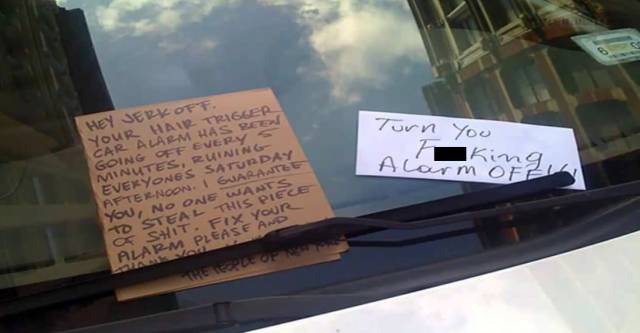 HEY JERKOFF.
YOUR HAIR TRIGGER
CAR ALARM HAS BEEN
GOING OFF EVERY 5
MINUTES, RUINING
EVERYONES SATURDAY
AFTERNOON. I GUARANTEE
YOU, NO ONE WANTS
TO STEAL THIS PIECE
OF SHIT. FIX YOUR
ALARM PLEASE AND
THANK YOU
THE PEOPLE OF NEW YORK
Turn You
F king
Alarm OFF!!